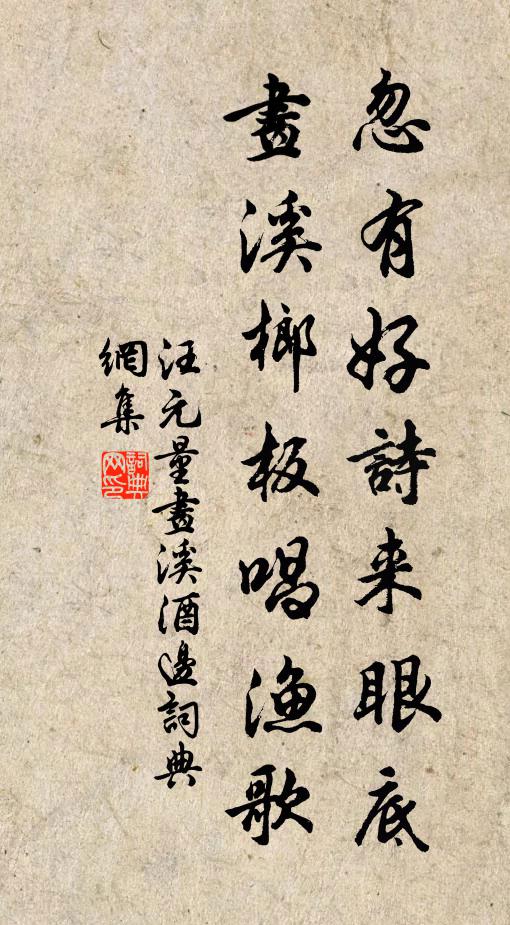 忽有好詩来眼底
畫溪榔板唱漁歌
汪元量畫溪酒邊詞典
網集
詞典網印